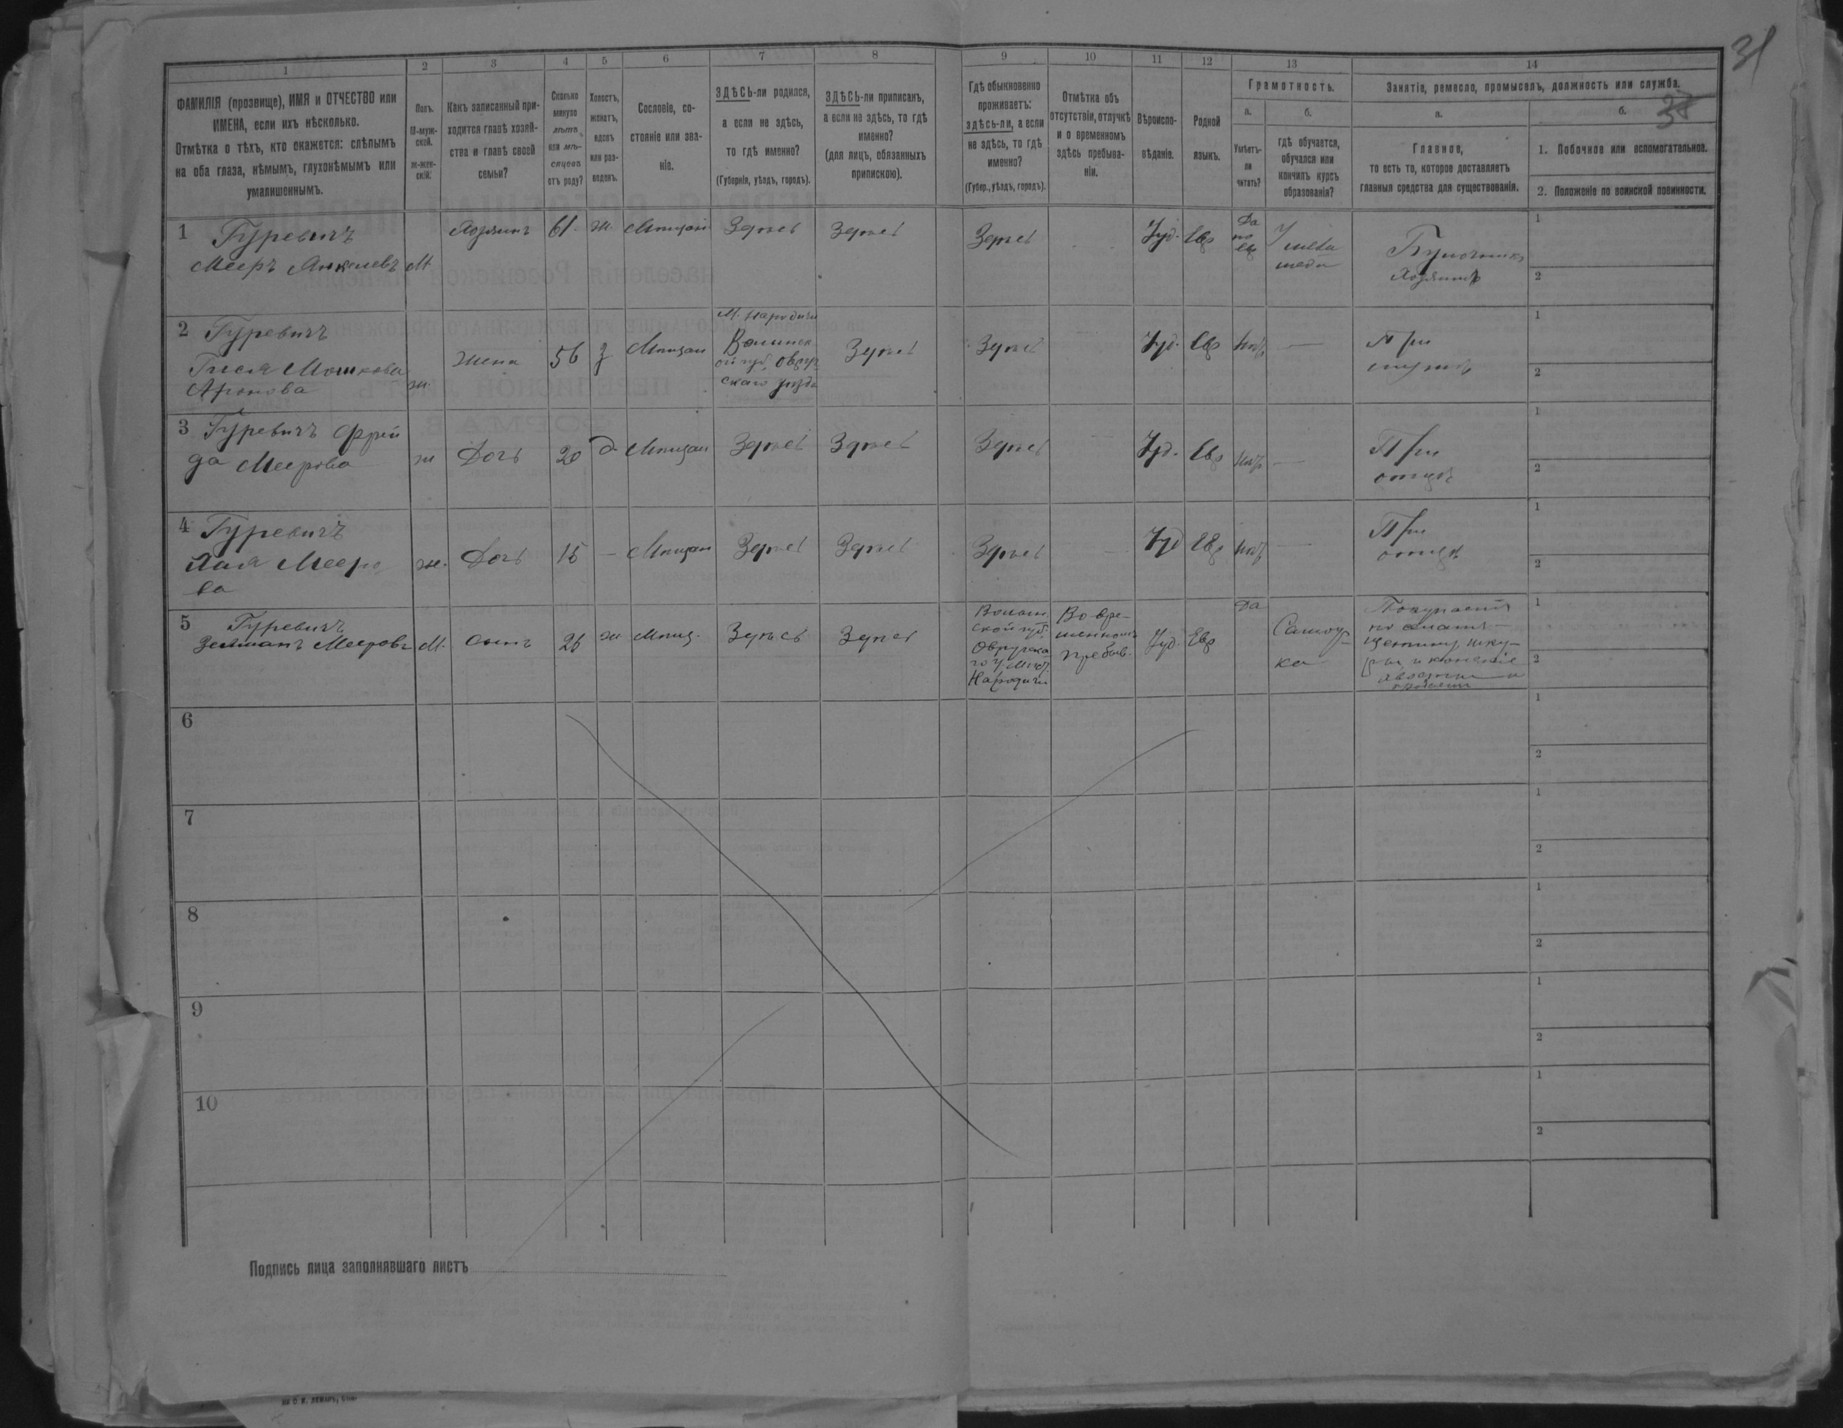 31
38
1
2
3
4
5
6
7
8
9
10
11
12
13
14
ФАМИЛІЯ (прозвище), ИМЯ и ОТЧЕСТВО или
ИМЕНА, если ихъ нѣсколько.
Отмѣтка о тѣхъ, кто окажется: слѣпымъ
на оба глаза, нѣмымъ, глухонѣмымъ или
умалишеннымъ.
Полъ.
М-муж-
ской.
Ж-жен-
скій.
Какъ записанный при-
ходится главѣ хозяй-
ства и главѣ своей
семьи?
Сколько
минуло
лѣтъ
или мѣ-
сяцевъ
отъ роду?
Холостъ,
женатъ,
вдовъ
или раз-
веденъ.
Сословіе, со-
стояніе или зва-
ніе.
ЗДѢСЬ-ли родился,
а если не здѣсь,
то гдѣ именно?
(Губернія, уѣздъ, городъ).
ЗДѢСЬ-ли приписанъ,
а если не здѣсь, то гдѣ
именно?
(для лицъ, обязанныхъ
припискою).
Гдѣ обыкновенно
проживаетъ:
здѣсь-ли, а если
не здѣсь, то гдѣ
именно?
(Губер., уѣздъ, городъ).
Отмѣтка объ
отсутствіи, отлучкѣ
и о временномъ
здѣсь пребыва-
ніи.
Вѣроиспо-
вѣданіе.
Родной
языкъ.
Грамотность.
а.
Умѣетъ-
ли
читать?
б.
гдѣ обучается,
обучался или
кончилъ курсъ
образованія?
Занятіе, ремесло, промыселъ, должность или служба.
а.
Главное,
то есть то, которое доставляетъ
главныя средства для существованія.
б.
1. Побочное или вспомогательное.
2. Положеніе по воинской повинности.
1 Гуревичъ
Мееръ Янкелевъ
М
Хозяинъ
61.
ж.
Мѣщан
Здѣсь
Здѣсь
Здѣсь
Іуд.
Евр
Да
по
евр
У мела
меда
Хозяинъ
1
2
2 Гуревичъ
Гися Мошкова
Аронова
ж.
Жена
56
з
Мѣщан
М. Народичи
Волынск
ой губ. Овруч
скаго уѣзда
Здѣсь
Здѣсь
Іуд.
Евр
нѣт
—
При
мужѣ
1
2
3 Гуревичъ Фрей
да Меерова
ж
Дочь
20
д
Мѣщан
Здѣсь
Здѣсь
Здѣсь
Іуд.
Евр
нѣт
—
При
отцѣ
1
2
4 Гуревичъ
Мееро
ва
ж.
Дочь
15
—
Мѣщан
Здѣсь
Здѣсь
Здѣсь
Іуд
Евр
нѣт
—
При
отцѣ
1
2
5 Гуревичъ
Зельманъ Мееровъ
М.
сынъ
26
ж
Мѣщ.
Здѣсь
Здѣсь
Волын
ской губ.
Овручска
го у. Мѣст.
Народичи
Во вре-
менномъ
пребыв.
Іуд
Евр
Да
Самоуч
ка
Покупаетъ
щетину, шку-
ры и конскіе
1
2
6
1
2
7
1
2
8
1
2
9
1
2
10
1
2
Подпись лица заполнявшаго листъ